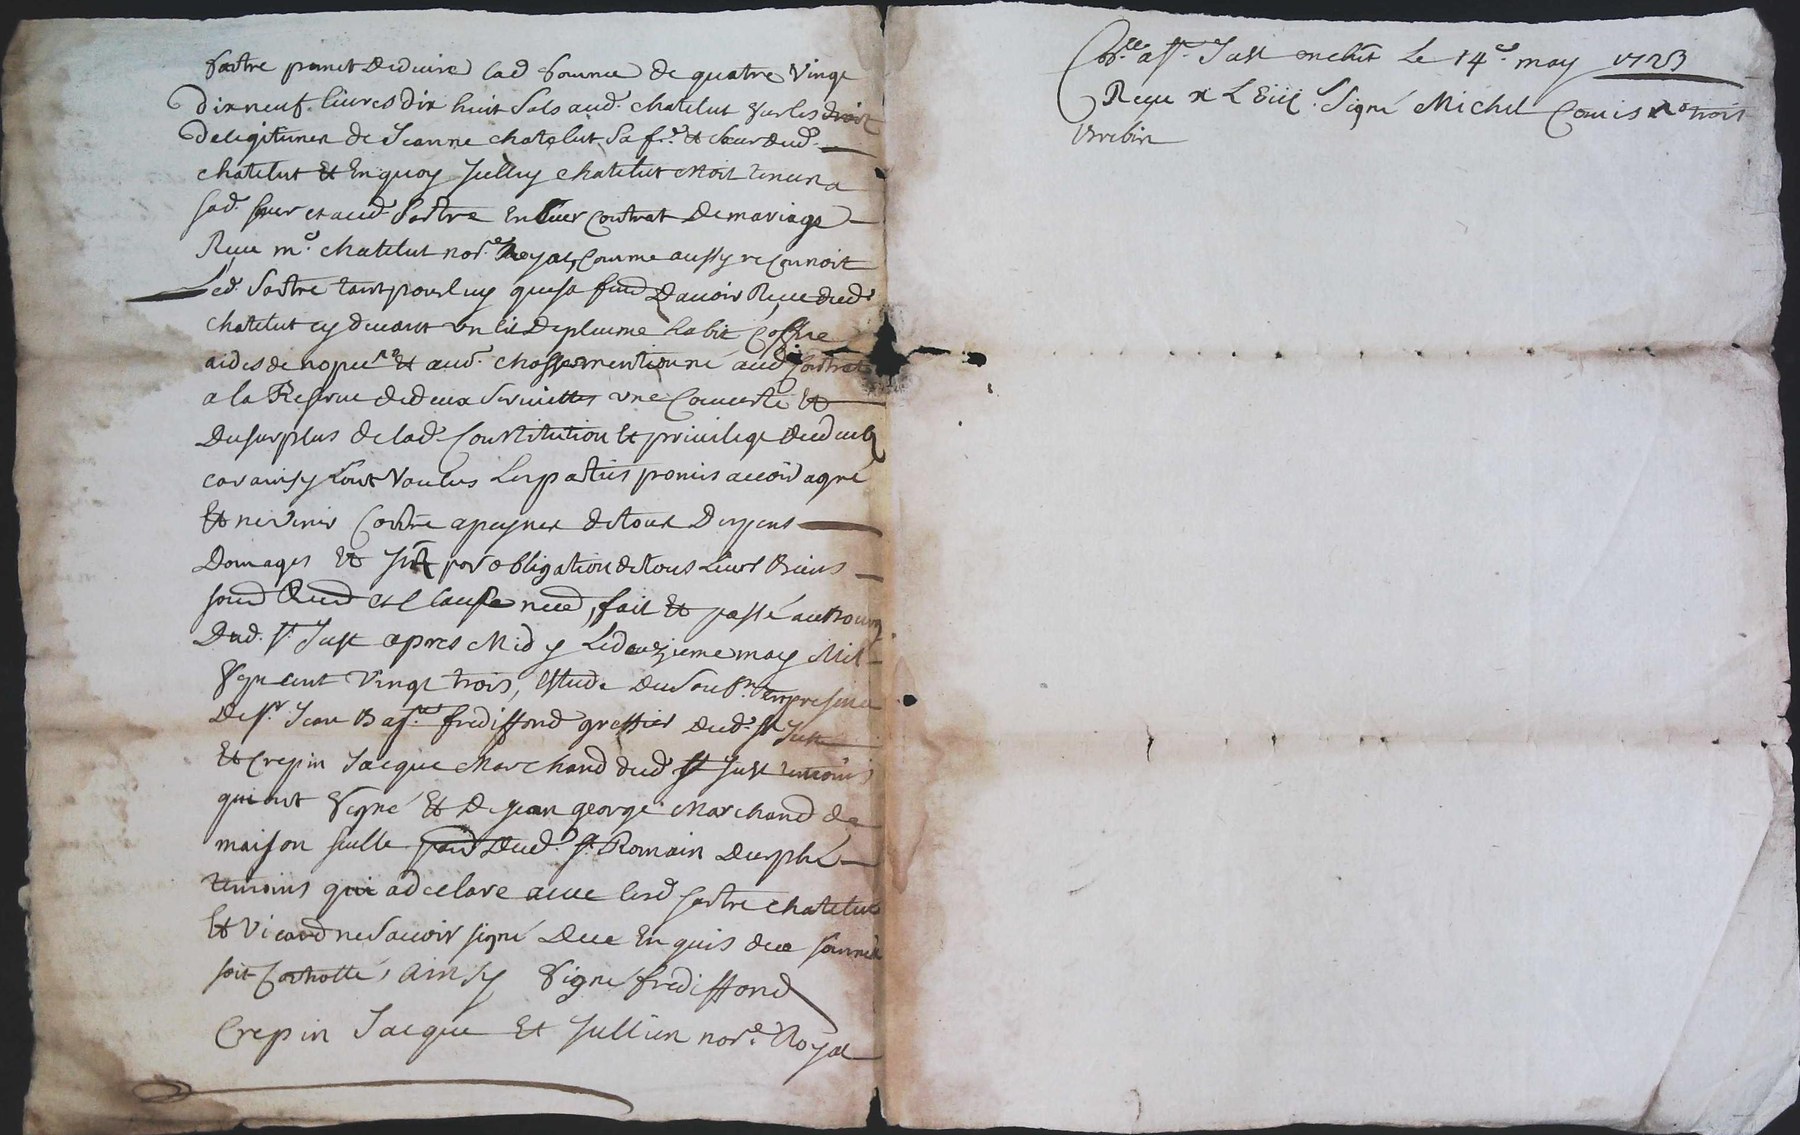 Sastre promet deduire lad somme de quatre vingt
dix neuf livres dix huit sols aud. chatelut sur les droit
de legitimes de Jeanne chatelut sa f.e et sœur dud.
chatelut et en quoy Jully chatelut etoit tenu a
sad. sœur et aud. Sastre en leur contrat de mariage
Receu m.e chatelut nor.e Royal, comme aussy reconnoit
Led. Sastre tant pour luy que sa fme d'avoir Receu dud.
chatelut cy devant un lit de plume habit coffre
et aud. chosses mentionné aud contrat
a la Reserve de deux serviettes une couverte et
du surplus de lad. Constitution et privilege
car ainsy l'ont voulus les parties promis avoir agré
et ne venir contre a peynes de tous depens
Domages et Int par obligation de tous leurs Biens
et clause necd, fait et passé au Bourg
Dud. St Just apres Midy Le douzieme may Mil
sept cent vingt trois, estude du soub.né en presence
de Sr Jean Bap.te frediffond greffier dud. St Just
et Crepin Jacque Marchand dud St Just temoins
qui ont signé et de Jean george Marchand de
maison seulle dud. St Romain Durphé
temoins qui a declare avec lesd Sastre chatelut
et Vicard ne savoir signé de ce enquis de ce sommés
soit Controllé, ainsy signé frediffond
Crepin Jacque et Jullien nor.e Royal
Con.llé a St. Just en chet Le 14.e may 1723
Receu signé Michel Comis